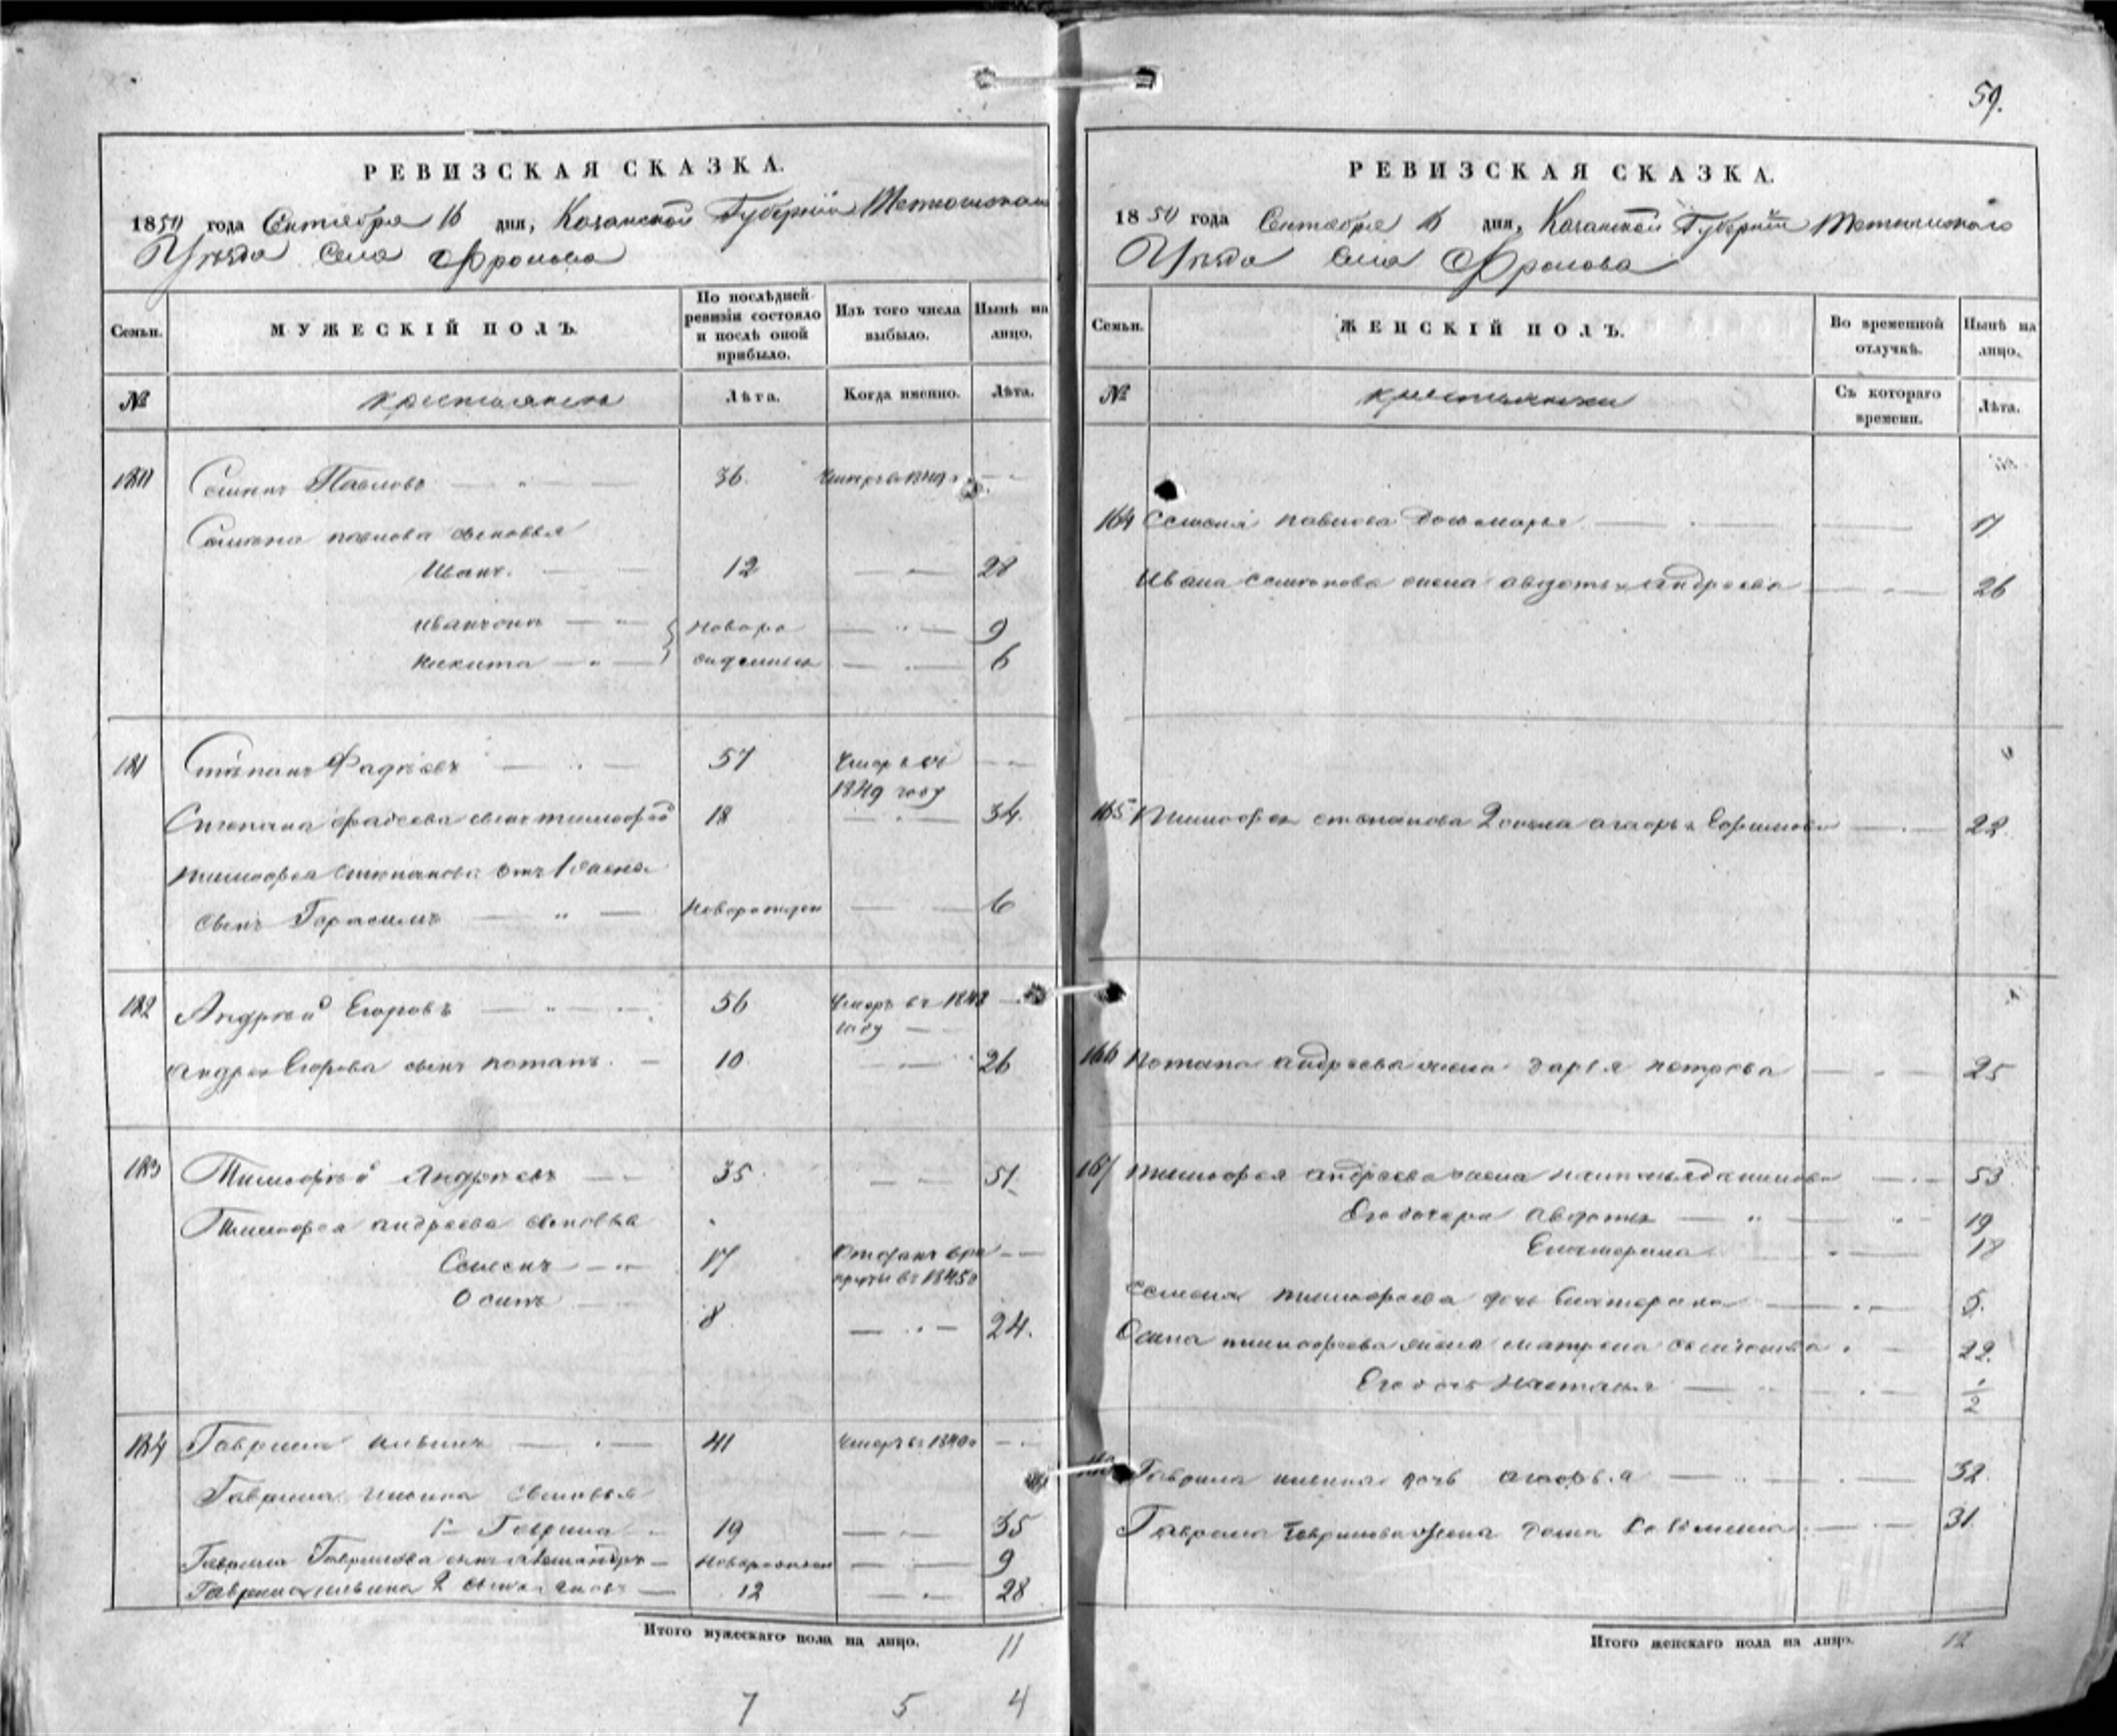 59.
РЕВИЗСКАЯ СКАЗКА.
1850 года Сентября 16 дня, Казанской Губернии Тетюшскаго
Уезда Села Фролова
Семьи. МУЖЕСКІЙ ПОЛЪ. По послѣдней ревизіи состояло и послѣ оной прибыло. Изъ того числа выбыло. Нынѣ на лицо.
№ крестьянъ Лѣта. Когда именно. Лѣта.
180 Семенъ Павловъ 36. Умеръ въ 1849
Семена павлова сыновья
Иванъ. 12 28
новоро 9
никита жденныя 6
181 Степанъ Фадѣевъ 57 Умеръ въ
1849 году
Степана фадеева сынъ тимофей 18 34.
тимофея степанова отъ 1
сынъ Герасимъ Новорожден 6
182 Андрей Егоровъ 56 Умеръ въ 1848
году
андрея Егорова сынъ потапъ. 10. 26
183 Тимофей Андреевъ 35 51.
Тимофея андреева сыновья
Семенъ 17 Отданъ врек
руты въ 1845
Осипъ 8 24.
184 Гаврила ильинъ 41 Умеръ въ 1840
Гаврила ильина сыновья
1 Гаврила 19 35
Гаврила Гаврилова сынъ Новорожден 9
Гаврила ильина 2 сынъ 12 28
Итого мужескаго пола на лицо. 11
7 5 4
РЕВИЗСКАЯ СКАЗКА.
1850 года Сентября 16 дня, Казанской Губернии Тетюшскаго
Уезда Села Фролова
Семьи. ЖЕНСКІЙ ПОЛЪ. Во временной отлучкѣ. Нынѣ на лицо.
№ крестьянки Съ котораго времени. Лѣта.
164 Семена павлова дочь марья 17
Ивана семенова жена авдотья андреева 26
165 Тимофея степанова 2 жена 22
166 Потапа андреева жена дарья петрова 25
167 тимофея андреева жена 53
Его дочери Авдотья 19
Екатерина 18
Семена тимофеева дочь Екатерина 5.
Осипа тимофеева жена матрена 22.
Его дочь Настасья 1/2
Гаврила ильина дочь 32
Гаврила Гаврилова жена 31.
Итого женскаго пола на лицо. 12